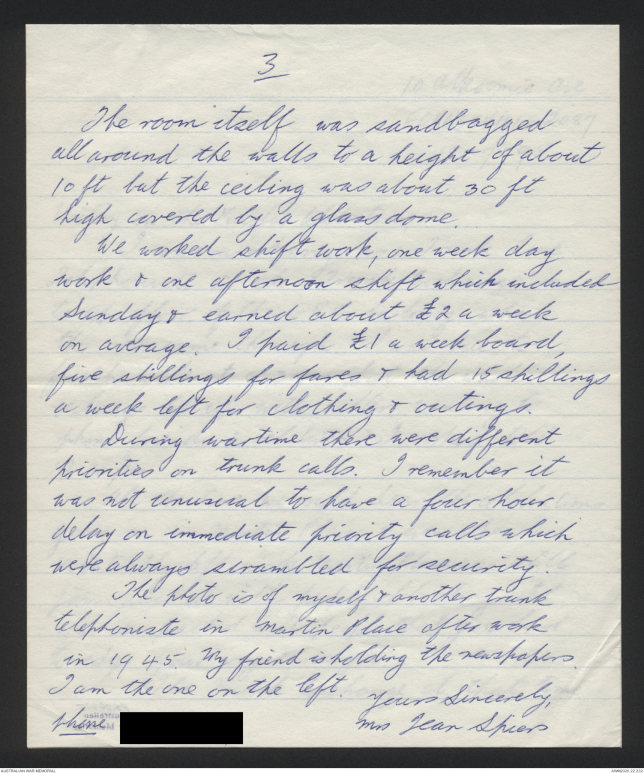 3
The room itself was sandbagged
all around the walls to a height of about
10 ft but the ceiling was about 30 ft
high covered by a glass dome.
We worked shift work, one week day
work & one afternoon shift which included
Sunday & earned about £2 a week
on average. I paid £1 a week board,
five shillings for fares & had 15 shillings
a week left for clothing & outings.
During wartime there were different
priorities on trunk calls. I remember it
was not unusual to have a four hour
delay on immediate priority calls which
were always scrambled for security.
The photo is of myself & another trunk
telephoniste in Martin Place after work
in 1945. My friend is holding the newspapers.
I am the one on the left.
Yours Sincerely,
phone
Mrs Jean Spiers
AUSTRALIAN WAR MEMORIAL